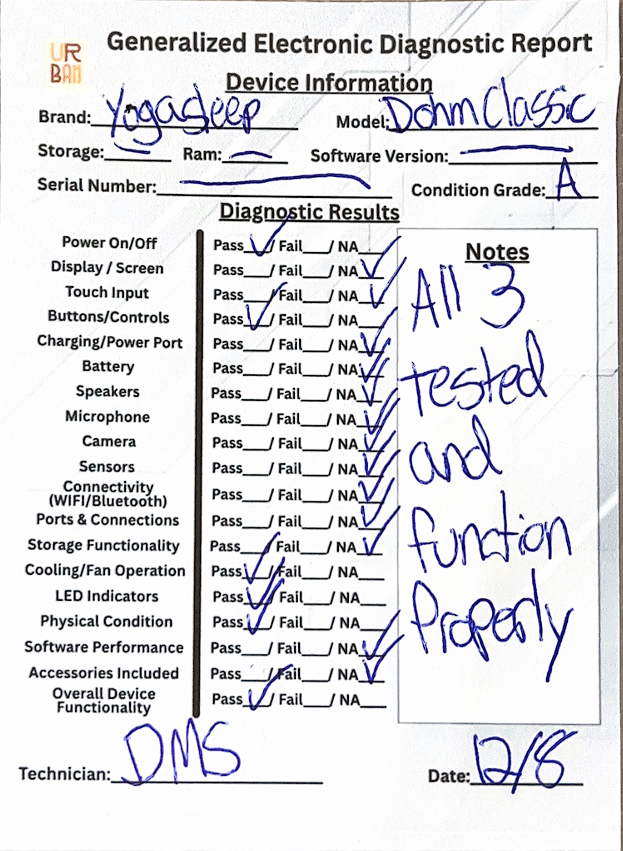 UR
BAN
Generalized Electronic Diagnostic Report
Device Information
Brand: Yogasleep Model: Dohm Classic
Storage: — Ram: — Software Version: —
Serial Number: — Condition Grade: A
Diagnostic Results
Power On/Off Pass ✓/ Fail___/ NA___
Display / Screen Pass___/ Fail___/ NA ✓
Touch Input Pass___/ Fail___/ NA ✓
Buttons/Controls Pass ✓/ Fail___/ NA___
Charging/Power Port Pass___/ Fail___/ NA ✓
Battery Pass___/ Fail___/ NA ✓
Speakers Pass___/ Fail___/ NA ✓
Microphone Pass___/ Fail___/ NA ✓
Camera Pass___/ Fail___/ NA ✓
Sensors Pass___/ Fail___/ NA ✓
Connectivity
(WIFI/Bluetooth) Pass___/ Fail___/ NA ✓
Ports & Connections Pass___/ Fail___/ NA ✓
Storage Functionality Pass___/ Fail___/ NA ✓
Cooling/Fan Operation Pass ✓/ Fail___/ NA___
LED Indicators Pass ✓/ Fail___/ NA___
Physical Condition Pass ✓/ Fail___/ NA___
Software Performance Pass___/ Fail___/ NA ✓
Accessories Included Pass___/ Fail___/ NA ✓
Overall Device
Functionality Pass ✓/ Fail___/ NA___
Notes
All 3
tested
and
function
Properly
Technician: DMS Date: 12/8